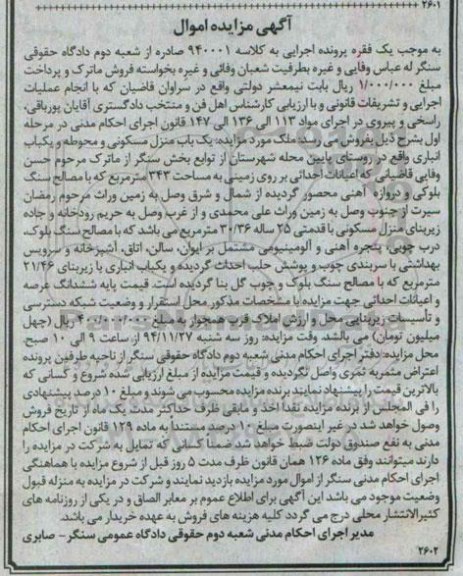 ۲۶۰۱
آگهی مزایده اموال
به موجب یک فقره پرونده اجرایی به کلاسه ۹۴۰۰۰۱ صادره از شعبه دوم دادگاه حقوقی
سنگر له عباس وفایی و غیره بطرفیت شعبان وفائی و غیره بخواسته فروش ماترک و پرداخت
مبلغ ۱/۰۰۰/۰۰۰ ریال بابت نیمعشر دولتی واقع در سراوان قاضیان که با انجام عملیات
اجرایی و تشریفات قانونی و با ارزیابی کارشناس اهل فن و منتخب دادگستری آقایان پوریاقی،
راسخی و پیروی در اجرای مواد ۱۱۳ الی ۱۳۶ الی ۱۴۷ قانون اجرای احکام مدنی در مرحله
اول بشرح ذیل بفروش می رسد. ملک مورد مزایده: یک باب منزل مسکونی و محوطه و یکباب
انباری واقع در روستای پایین محله شهرستان از توابع بخش سنگر از ماترک مرحوم حسن
وفایی قاضیانی که اعیانات احداثی بر روی زمینی به مساحت ۳۴۳ مترمربع که با مصالح سنگ
بلوکی و دروازه آهنی محصور گردیده از شمال و شرق وصل به زمین وراث مرحوم رمضان
سیرت از جنوب وصل به زمین وراث علی محمدی و از غرب وصل به حریم رودخانه و جاده
زیربنای منزل مسکونی با قدمتی ۲۵ ساله ۳۰/۳۶ مترمربع می باشد که با مصالح سنگ بلوک،
درب چوبی، پنجره آهنی و آلومینیومی مشتمل بر ایوان، سالن، اتاق، آشپزخانه و سرویس
بهداشتی با سربندی چوب و پوشش حلب احداث گردیده و یکباب انباری با زیربنای ۲۱/۴۶
مترمربع که با مصالح سنگ بلوک و چوب گل بنا گردیده است. قیمت پایه ششدانگ عرصه
و اعیانات احداثی جهت مزایده با مشخصات مذکور محل استقرار و وضعیت شبکه دسترسی
و تأسیسات زیربنایی محل و ارزش املاک قرب همجوار به مبلغ ۴۰۰/۰۰۰/۰۰۰ ریال (چهل
میلیون تومان) می باشد. وقت مزایده: روز سه شنبه ۹۴/۱۱/۲۷ از ساعت ۹ الی ۱۰ صبح
محل مزایده: دفتر اجرای احکام مدنی شعبه دوم دادگاه حقوقی سنگر از ناحیه طرفین پرونده
اعتراض مثمربه ثمری واصل نگردیده و قیمت مزایده از مبلغ ارزیابی شده شروع و کسانی که
بالاترین قیمت را پیشنهاد نمایند برنده مزایده محسوب می شوند و مبلغ ۱۰ درصد پیشنهادی
را فی المجلس از برنده مزایده نقدا اخذ و مابقی ظرف حداکثر مدت یک ماه از تاریخ فروش
وصول خواهد شد در غیر اینصورت مبلغ ۱۰ درصد مستنداً به ماده ۱۲۹ قانون اجرای احکام
مدنی به نفع صندوق دولت ضبط خواهد شد. ضمناً کسانی که تمایل به شرکت در مزایده را
دارند میتوانند وفق ماده ۱۲۶ همان قانون ظرف مدت ۵ روز قبل از شروع مزایده با هماهنگی
اجرای احکام مدنی سنگر از اموال مورد مزایده بازدید نمایند و شرکت در مزایده به منزله قبول
وضعیت موجود می باشد این آگهی برای اطلاع عموم بر معابر الصاق و در یکی از روزنامه های
کثیرالانتشار محلی درج می گردد کلیه هزینه های فروش به عهده خریدار می باشد.
مدیر اجرای احکام مدنی شعبه دوم حقوقی دادگاه عمومی سنگر - صابری
۲۶۰۲